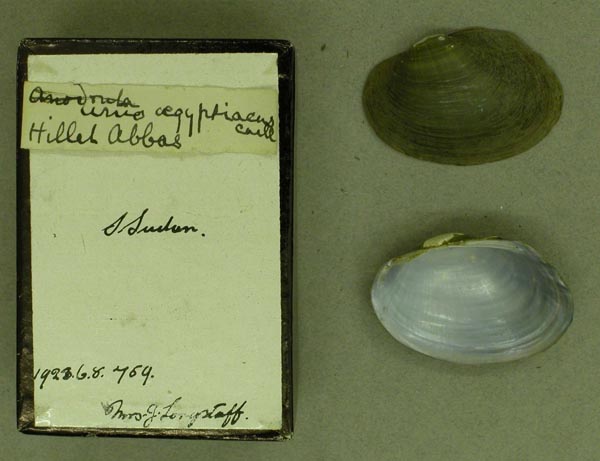 Anodonta
unio ægyptiacus
Caill
Hillet Abbas
S Sudan.
1923.6.8. 769.
Mrs. J. Longstaff.